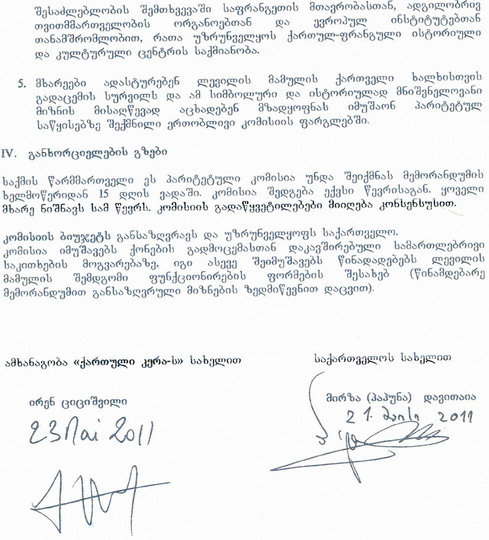 შესაძლებლობის შემთხვევაში საფრანგეთის მთავრობასთან, ადგილობრივ
თვითმმართველობის ორგანოებთან და ევროპულ ინსტიტუტებთან
თანამშრომლობით, რათა უზრუნველყოს ქართულ-ფრანგული ისტორიული
და კულტურული ცენტრის საქმიანობა.
5. მხარეები ადასტურებენ ლევილის მამულის ქართველი ხალხისთვის
გადაცემის სურვილს და ამ სიმბოლური და ისტორიულად მნიშვნელოვანი
მიზნის მისაღწევად აცხადებენ მზადყოფნას იმუშაონ პარიტეტულ
საწყისებზე შექმნილი ერთობლივი კომისიის ფარგლებში.
IV. განხორციელების გზები
საქმის წარმმართველი ეს პარიტეტული კომისია უნდა შეიქმნას მემორანდუმის
ხელმოწერიდან 15 დღის ვადაში. კომისია შედგება ექვსი წევრისაგან. ყოველი
მხარე ნიშნავს სამ წევრს. კომისიის გადაწყვეტილებები მიიღება კონსენსუსით.
კომისიის ბიუჯეტს განსაზღვრავს და უზრუნველყოფს საქართველო.
კომისია იმუშავებს ქონების გადმოცემასთან დაკავშირებული სამართლებრივი
საკითხების მოგვარებაზე, იგი ასევე შეიმუშავებს წინადადებებს ლევილის
მამულის შემდგომი ფუნქციონირების ფორმების შესახებ (წინამდებარე
მემორანდუმით განსაზღვრული მიზნების ზედმიწევნით დაცვით).
ამხანაგობა «ქართული კერა-ს» სახელით
საქართველოს სახელით
ირენ ციციშვილი
მირზა (პაპუნა) დავითაია
23 Mai 2011
21. მაისი 2011